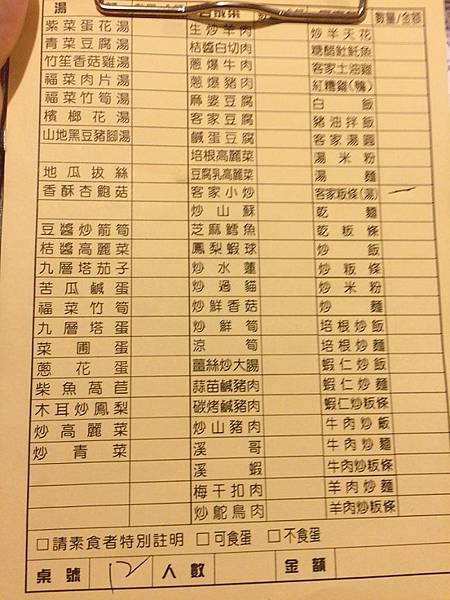 湯 數量/金額
紫菜蛋花湯 生炒羊肉 炒羊天花
青菜豆腐湯 桔醬白切肉 糖醋魠魠魚
竹笙香菇雞湯 蔥爆牛肉 客家土油雞
福菜肉片湯 蔥爆豬肉 紅糟雞(鴨)
福菜竹筍湯 麻婆豆腐 白飯
檳榔花湯 客家豆腐 豬油拌飯
山地黑豆豬腳湯 鹹蛋豆腐 客家湯圓
培根高麗菜 湯米粉
地瓜拔絲 豆腐乳高麗菜 湯麵
香酥杏鮑菇 客家小炒 客家粄條(湯)
炒山蘇 乾麵
豆醬炒箭筍 芝麻鱈魚 乾粄條
桔醬高麗菜 鳳梨蝦球 炒飯
九層塔茄子 炒水蓮 炒粄條
苦瓜鹹蛋 炒過貓 炒米粉
福菜竹筍 炒鮮香菇 炒麵
九層塔蛋 炒鮮筍 培根炒飯
菜脯蛋 涼筍 培根炒麵
蔥花蛋 薑絲炒大腸 蝦仁炒飯
柴魚萵苣 蒜苗鹹豬肉 蝦仁炒麵
木耳炒鳳梨 碳烤鹹豬肉 蝦仁炒粄條
炒高麗菜 炒山豬肉 牛肉炒飯
炒青菜 溪哥 牛肉炒麵
溪蝦 牛肉炒粄條
梅干扣肉 羊肉炒麵
炒鴕鳥肉 羊肉炒粄條
□請素食者特別註明 □可食蛋 □不食蛋
桌號 12 人數 金額